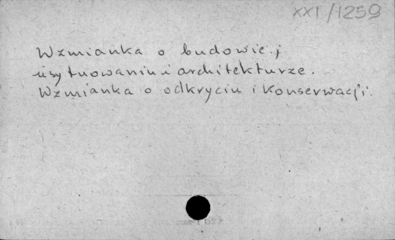 XXI/1259
Wzmianka o budowie j
usytuowaniu i architekturze.
Wzmianka o odkryciu i konserwacji.